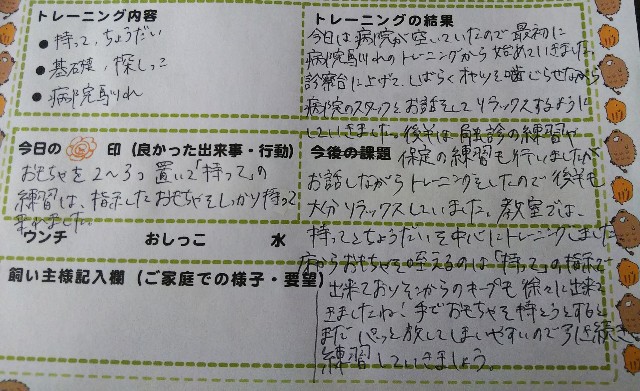 トレーニング内容
● 持って、ちょうだい
● 基石強、探しっこ
● 病院馴れ
今日の 印 (良かった出来事・行動)
おもちゃを2〜3つ置いて「持って」の
練習は、指示したおもちゃをしっかり持って
来れました。
ウンチ おしっこ 水
飼い主様記入欄 (ご家庭での様子・要望)
トレーニングの結果
今日は病院が空いていたので最初に
病院馴れのトレーニングから始めていきました。
診察台に上げて、しばらくオヤツを噛じらせながら
病院のスタッフとお話をしてリラックスするように
していきました。後半は 診の練習や
今後の課題 保定の練習も行いましたが
お話しながらトレーニングをしたので後半も
大分リラックスしていました。教室では、
持ってとちょうだいを中心にトレーニングしました
床からおもちゃを咥えるのは「持って」の指示で
出来ておりそこからのキープも徐々に出来て
きましたね!手でおもちゃを持とうとすると
まだパッと放してしまいやすいので引き続き
練習していきましょう。